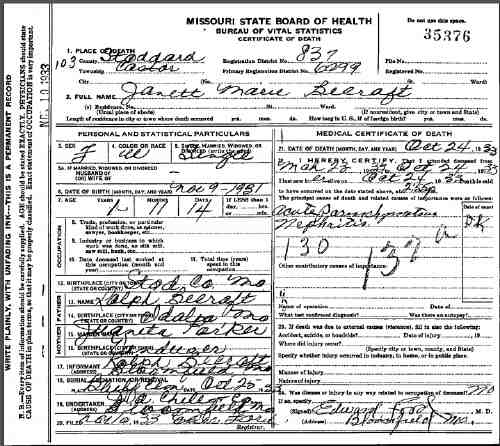 MISSOURI STATE BOARD OF HEALTH
BUREAU OF VITAL STATISTICS
CERTIFICATE OF DEATH
Do not use this space.
35376
1. PLACE OF DEATH
103 County Stoddard
Registration District No. 837
File No.
Township Castor
Primary Registration District No. 6299
Registered No.
City
No.
St.
Ward)
2. FULL NAME Janett Marie Becraft
(a) Residence, No.
St., Ward.
(Usual place of abode)
(If nonresident, give city or town and State)
Length of residence in city or town where death occurred
How long in U. S., if of foreign birth?
PERSONAL AND STATISTICAL PARTICULARS
3. SEX F
4. COLOR OR RACE W
5. SINGLE, MARRIED, WIDOWED, OR
Single
5A. IF MARRIED, WIDOWED, OR DIVORCED
HUSBAND OF
(OR) WIFE OF
6. DATE OF BIRTH (MONTH, DAY, AND YEAR) Nov 9-1931
7. AGE YEARS MONTHS DAYS
1 14
If LESS than
8. Trade, profession, or particular
kind of work done, as spinner,
sawyer, bookkeeper, etc.
9. Industry or business in which
work was done, as silk mill,
saw mill, bank, etc.
10. Date deceased last worked at
this occupation (month and
year)
11. Total time (years)
spent in this
occupation
OCCUPATION
12. BIRTHPLACE (CITY OR TOWN)
(STATE OR COUNTRY)
Stod. Co. Mo
FATHER
13. NAME Ralph Becraft
14. BIRTHPLACE (CITY OR TOWN)
(STATE OR COUNTRY)
Mo
MOTHER
15. MAIDEN NAME Parker
16. BIRTHPLACE (CITY OR TOWN)
(STATE OR COUNTRY)
17. INFORMANT Ralph Becraft
(ADDRESS) Bloomfield Mo
18. BURIAL, CREMATION, OR REMOVAL
Oct 25 33
20. UNDERTAKER
(ADDRESS) Bloomfield Mo
20. FILED
Registrar.
MEDICAL CERTIFICATE OF DEATH
21. DATE OF DEATH (MONTH, DAY, AND YEAR) Oct 24, 1933
22. I HEREBY CERTIFY, That I attended deceased from
Oct 24, 1933
Oct 24
to have occurred on the date stated above, at
The principal cause of death and related causes of importance were as follows:
Date of onset
Acute Parenchymatous
Nephritis
DK
130
137a
Other contributory causes of importance:
Name of operation
Date of
What test confirmed diagnosis?
Was there an autopsy?
23. If death was due to external causes (violence), fill in also the following:
Accident, suicide, or homicide?
Date of injury
19
Where did injury occur?
(Specify city or town, county, and State)
Specify whether injury occurred in industry, in home, or in public place.
Manner of injury
Nature of injury
24. Was disease or injury in any way related to occupation of deceased? No
If so, specify
(Signed) Edward
M. D.
(Address) Bloomfield Mo.
WRITE PLAINLY, WITH UNFADING INK—THIS IS A PERMANENT RECORD
N. B.—Every item of information should be carefully supplied. AGE should be stated EXACTLY. PHYSICIANS should state
CAUSE OF DEATH in plain terms, so that it may be properly classified. Exact statement of OCCUPATION is very important.
10 1933